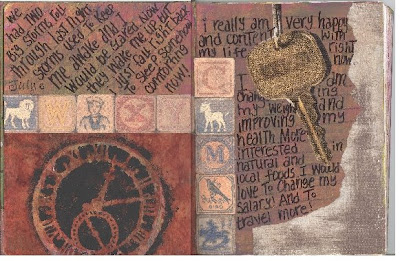 We
had TWO
Big Storms roll
Through Last Night
Storms used To Keep
me awake and I
Would be Scared. NOW
They Wake me up but
I just Fall right back
To Sleep. Somehow
comforting
now!
i really am very happy
and content with
my life right
now
I am
changing
my weight and
improving my
health. More
interested in
natural and
local foods I Would
love To Change my
Salary! And To
travel more!
W X Y
C
M